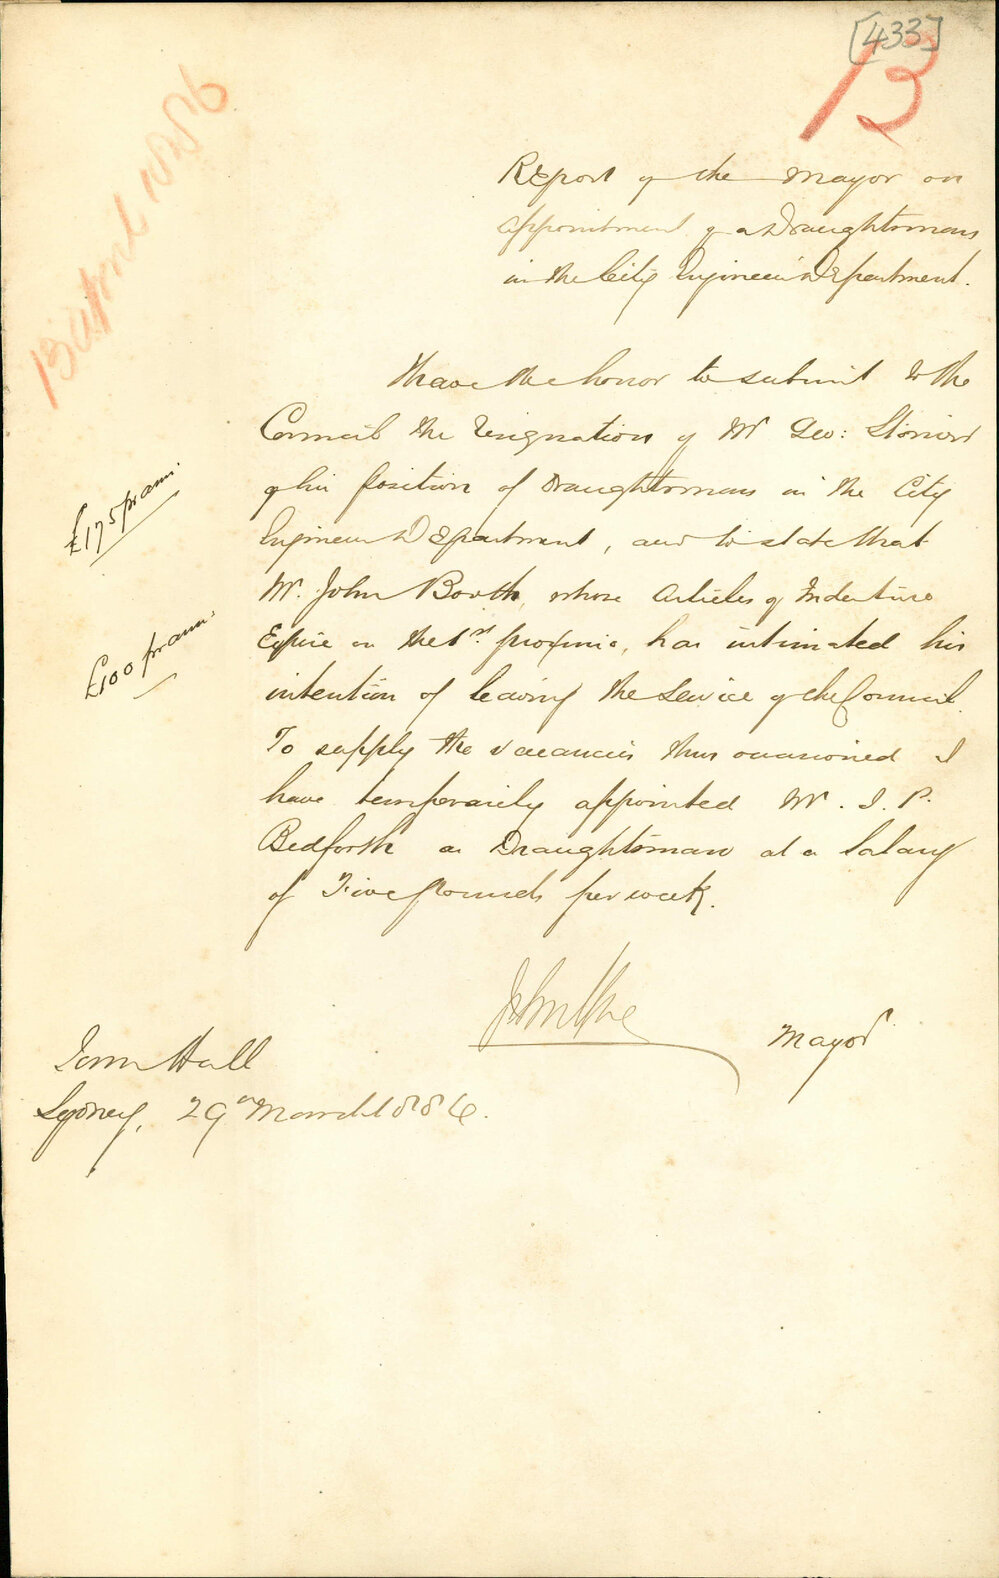 [433]
13
13 April 1886
Report of the Mayor on
appointment of a Draughtsman
in the City Engineer's Department.
I have the honor to submit to the
Council the resignation of Mr Geo:
£175 pr ann:
of his position of Draughtsman in the City
Engineer's Department, and to state that
Mr. John Booth, whose Articles of Indenture
£100 pr ann:
Expire on the 1st proximo, has intimated his
intention of leaving the Service of the Council.
To supply the vacancies thus occasioned I
have temporarily appointed Mr. J. P.
Bedforth as Draughtsman at a Salary
of Five pounds per week.
John
Mayor
Town Hall
Sydney, 29th March 1886.